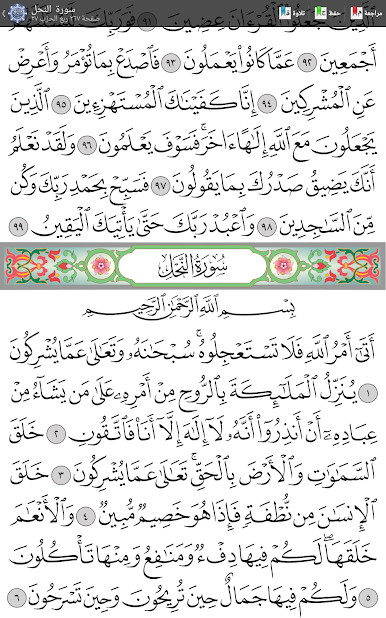 سورة النحل
صفحة ٢٦٧ ربع الحزب ٢٧
تلاوة
حفظ
مراجعة
جَعَلُوا۟ ٱلْقُرْءَانَ عِضِينَ ٩١ فَوَرَبِّكَ
أَجْمَعِينَ ٩٢ عَمَّا كَانُوا۟ يَعْمَلُونَ ٩٣ فَٱصْدَعْ بِمَا تُؤْمَرُ وَأَعْرِضْ
عَنِ ٱلْمُشْرِكِينَ ٩٤ إِنَّا كَفَيْنَٰكَ ٱلْمُسْتَهْزِءِينَ ٩٥ ٱلَّذِينَ
يَجْعَلُونَ مَعَ ٱللَّهِ إِلَٰهًا ءَاخَرَ ۚ فَسَوْفَ يَعْلَمُونَ ٩٦ وَلَقَدْ نَعْلَمُ
أَنَّكَ يَضِيقُ صَدْرُكَ بِمَا يَقُولُونَ ٩٧ فَسَبِّحْ بِحَمْدِ رَبِّكَ وَكُن
مِّنَ ٱلسَّٰجِدِينَ ٩٨ وَٱعْبُدْ رَبَّكَ حَتَّىٰ يَأْتِيَكَ ٱلْيَقِينُ ٩٩
سُورَةُ النَّحْلِ
بِسْمِ ٱللَّهِ ٱلرَّحْمَٰنِ ٱلرَّحِيمِ
أَتَىٰٓ أَمْرُ ٱللَّهِ فَلَا تَسْتَعْجِلُوهُ ۚ سُبْحَٰنَهُۥ وَتَعَٰلَىٰ عَمَّا يُشْرِكُونَ
١ يُنَزِّلُ ٱلْمَلَٰٓئِكَةَ بِٱلرُّوحِ مِنْ أَمْرِهِۦ عَلَىٰ مَن يَشَآءُ مِنْ
عِبَادِهِۦٓ أَنْ أَنذِرُوٓا۟ أَنَّهُۥ لَآ إِلَٰهَ إِلَّآ أَنَا۠ فَٱتَّقُونِ ٢ خَلَقَ
ٱلسَّمَٰوَٰتِ وَٱلْأَرْضَ بِٱلْحَقِّ ۚ تَعَٰلَىٰ عَمَّا يُشْرِكُونَ ٣ خَلَقَ
ٱلْإِنسَٰنَ مِن نُّطْفَةٍ فَإِذَا هُوَ خَصِيمٌ مُّبِينٌ ٤ وَٱلْأَنْعَٰمَ
خَلَقَهَا ۗ لَكُمْ فِيهَا دِفْءٌ وَمَنَٰفِعُ وَمِنْهَا تَأْكُلُونَ
٥ وَلَكُمْ فِيهَا جَمَالٌ حِينَ تُرِيحُونَ وَحِينَ تَسْرَحُونَ ٦